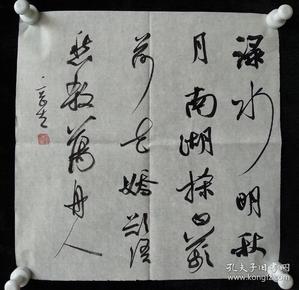 渌水明秋
月南湖採白蘋
荷花嬌欲語
愁殺蕩舟人
孔夫子旧书网